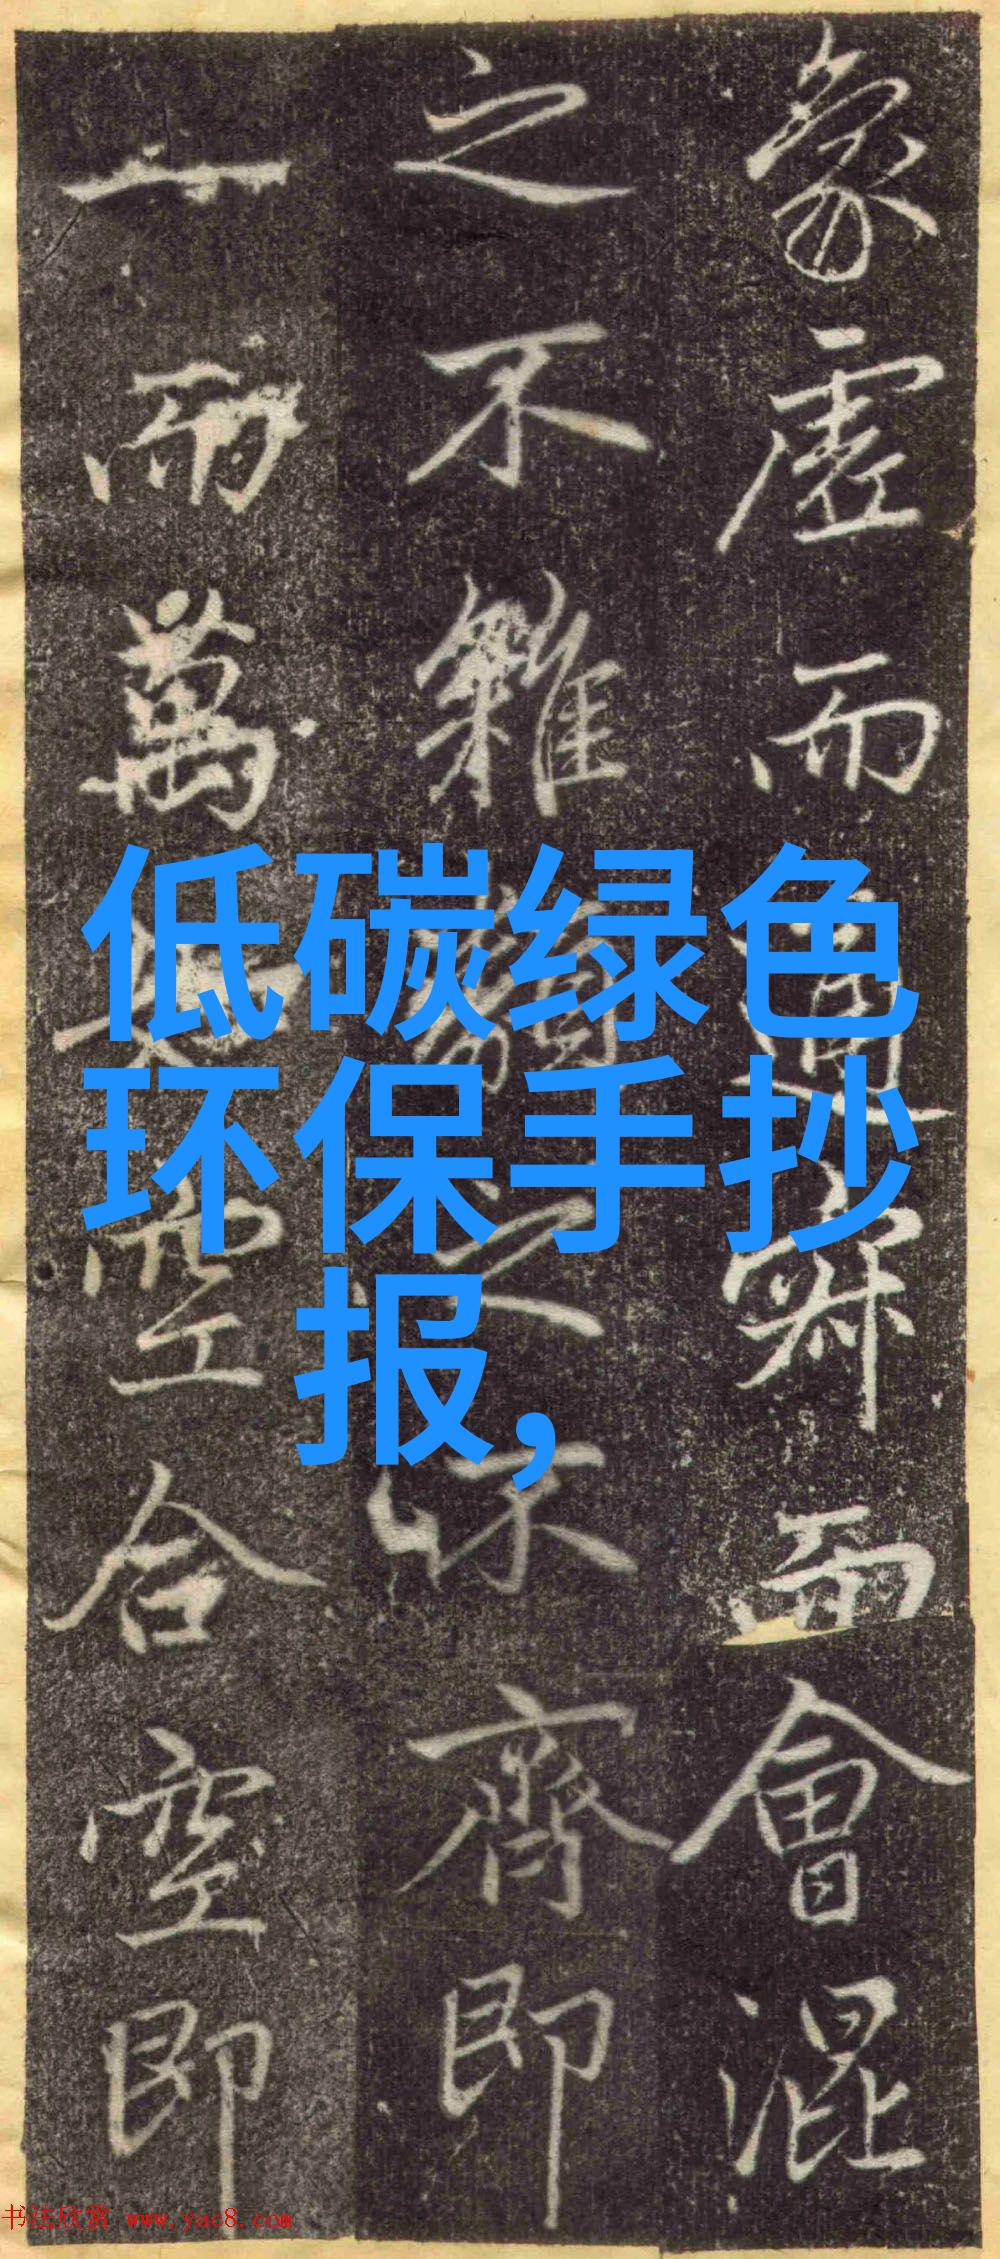 象虚而通寂而會混
之不雜
之不齊即
一而萬
空合空即
低碳绿色
环保手抄
报，
书法欣赏 www.yac8.com